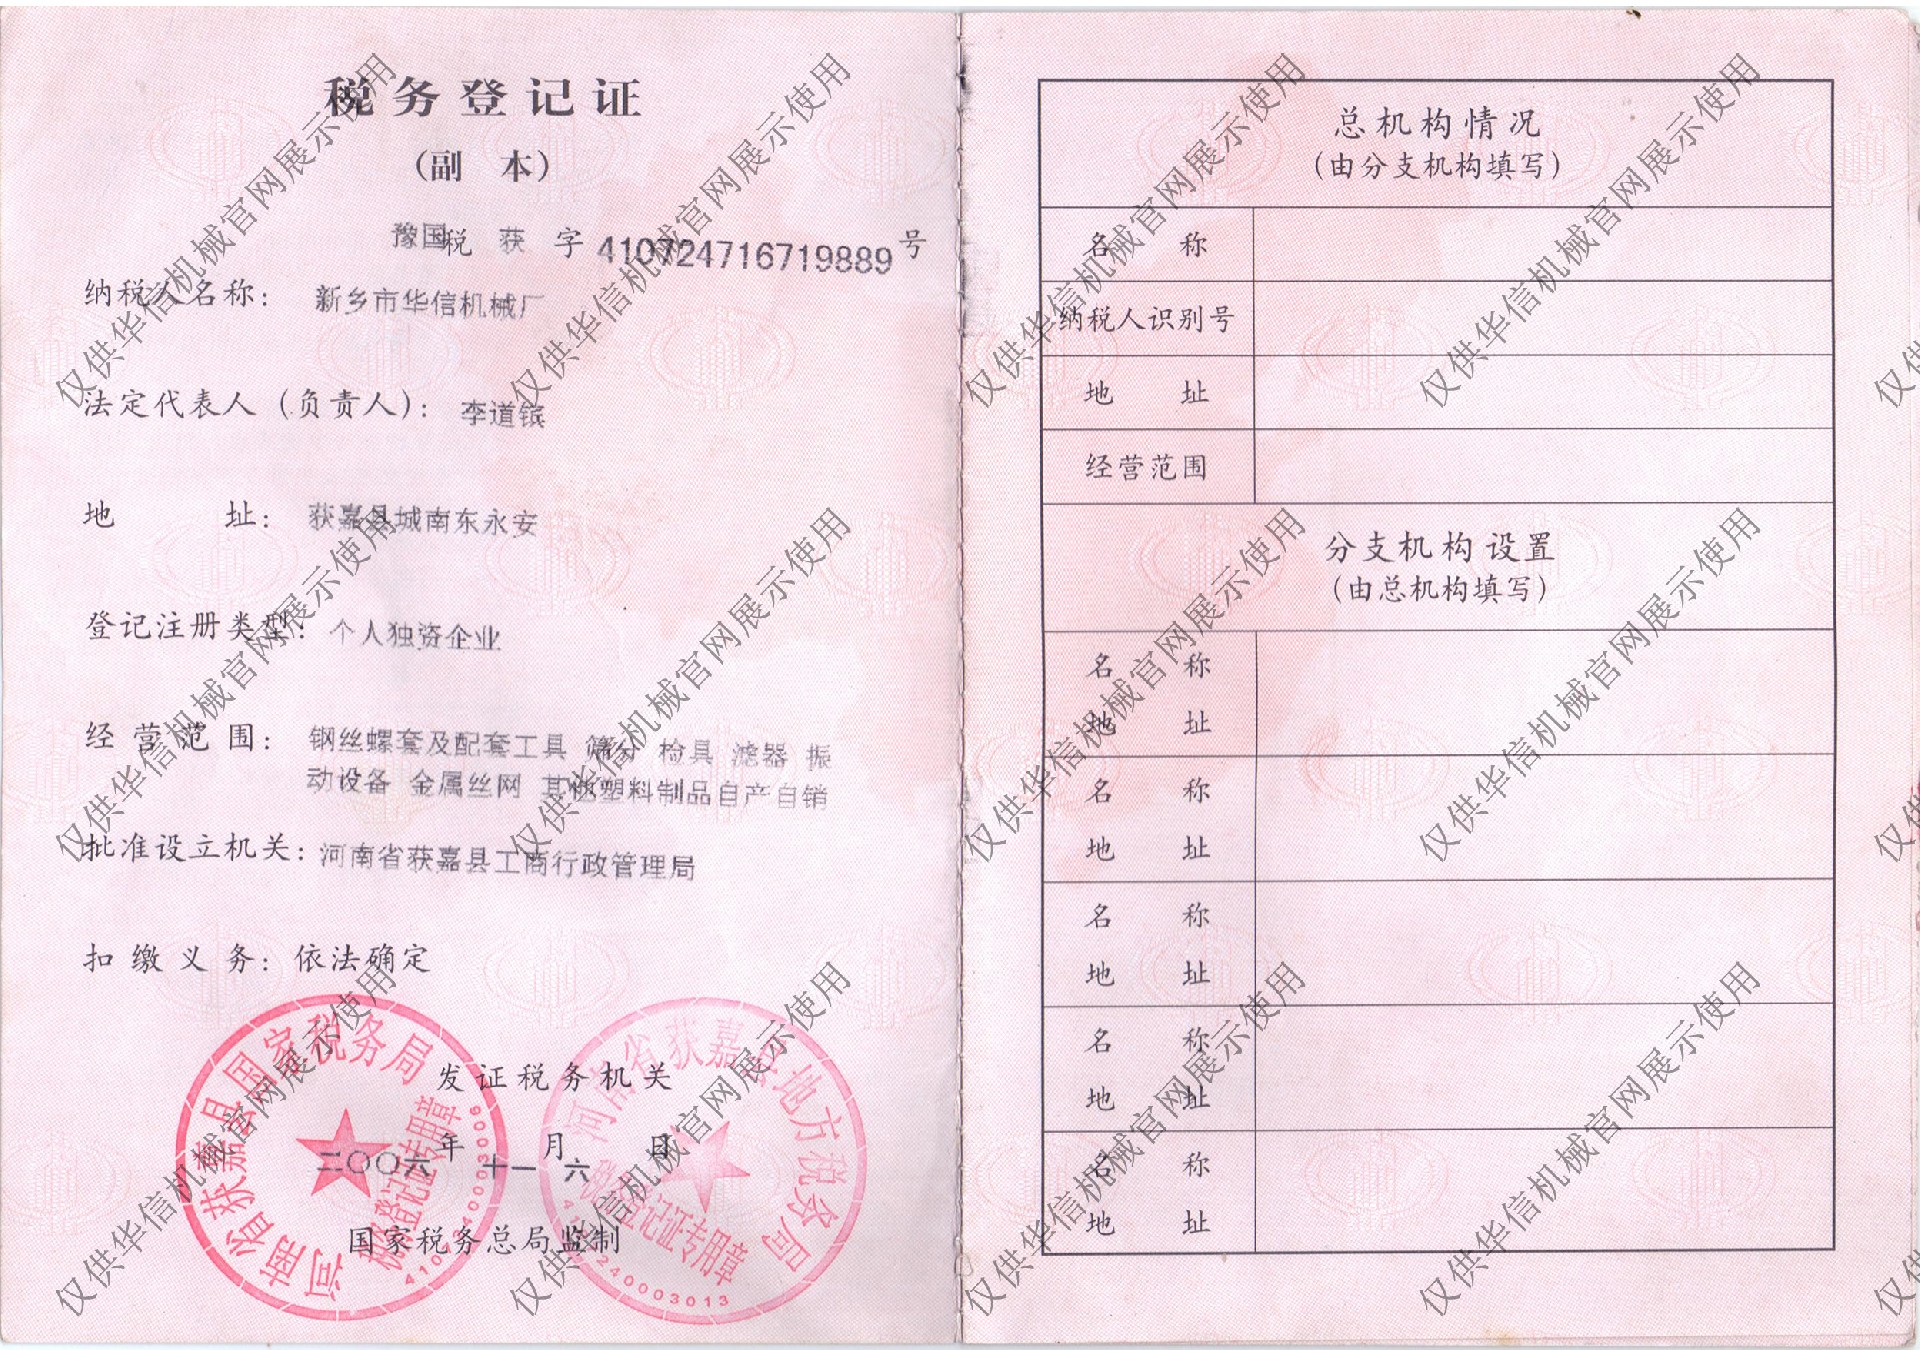 税务登记证
(副 本)
豫国税 获 字 410724716719889 号
纳税人名称: 新乡市华信机械厂
法定代表人(负责人): 李道镔
地 址: 获嘉县城南东永安
登记注册类型: 个人独资企业
经营范围: 钢丝螺套及配套工具 筛分 检具 滤器 振
动设备 金属丝网 其他塑料制品自产自销
批准设立机关: 河南省获嘉县工商行政管理局
扣缴义务: 依法确定
发证税务机关
二〇〇六年 十一月 六日
国家税务总局监制
河南省获嘉县国家税务局
税务登记证专用章
河南省获嘉县地方税务局
税务登记证专用章
总机构情况
(由分支机构填写)
名 称
纳税人识别号
地 址
经营范围
分支机构设置
(由总机构填写)
名 称
地 址
名 称
地 址
名 称
地 址
名 称
地 址
名 称
地 址
仅供华信机械官网展示使用